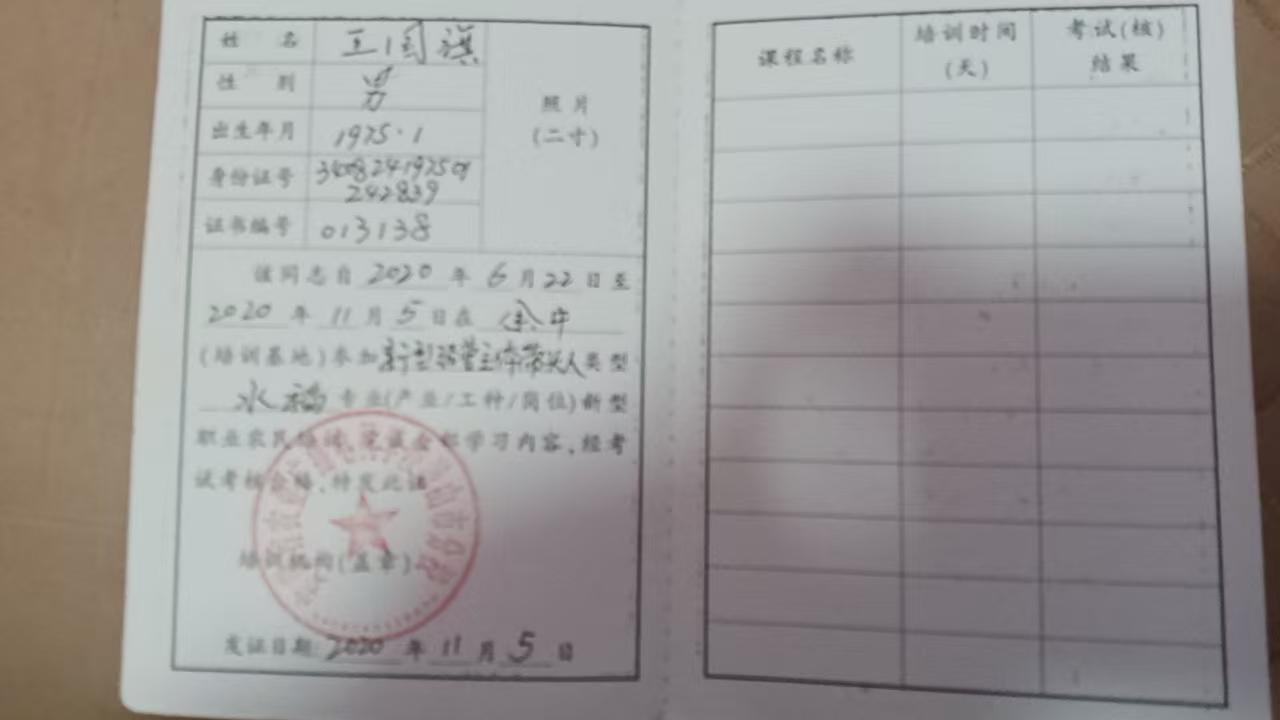 姓 名 王国祺
性 别 男
出生年月 1975.1
身份证号 340824197501
242839
证书编号 013138
照片
(二寸)
该同志自 2020 年 6 月 22 日至
2020 年 11 月 5 日在
(培训基地)参加新型经营主体带头人类型
水稻 专业(产业/工种/岗位)新型
职业农民培训,完成全部学习内容,经考
试考核合格,特发此证
培训机构(盖章)
发证日期:2020 年 11 月 5 日
课程名称 培训时间(天) 考试(核)结果